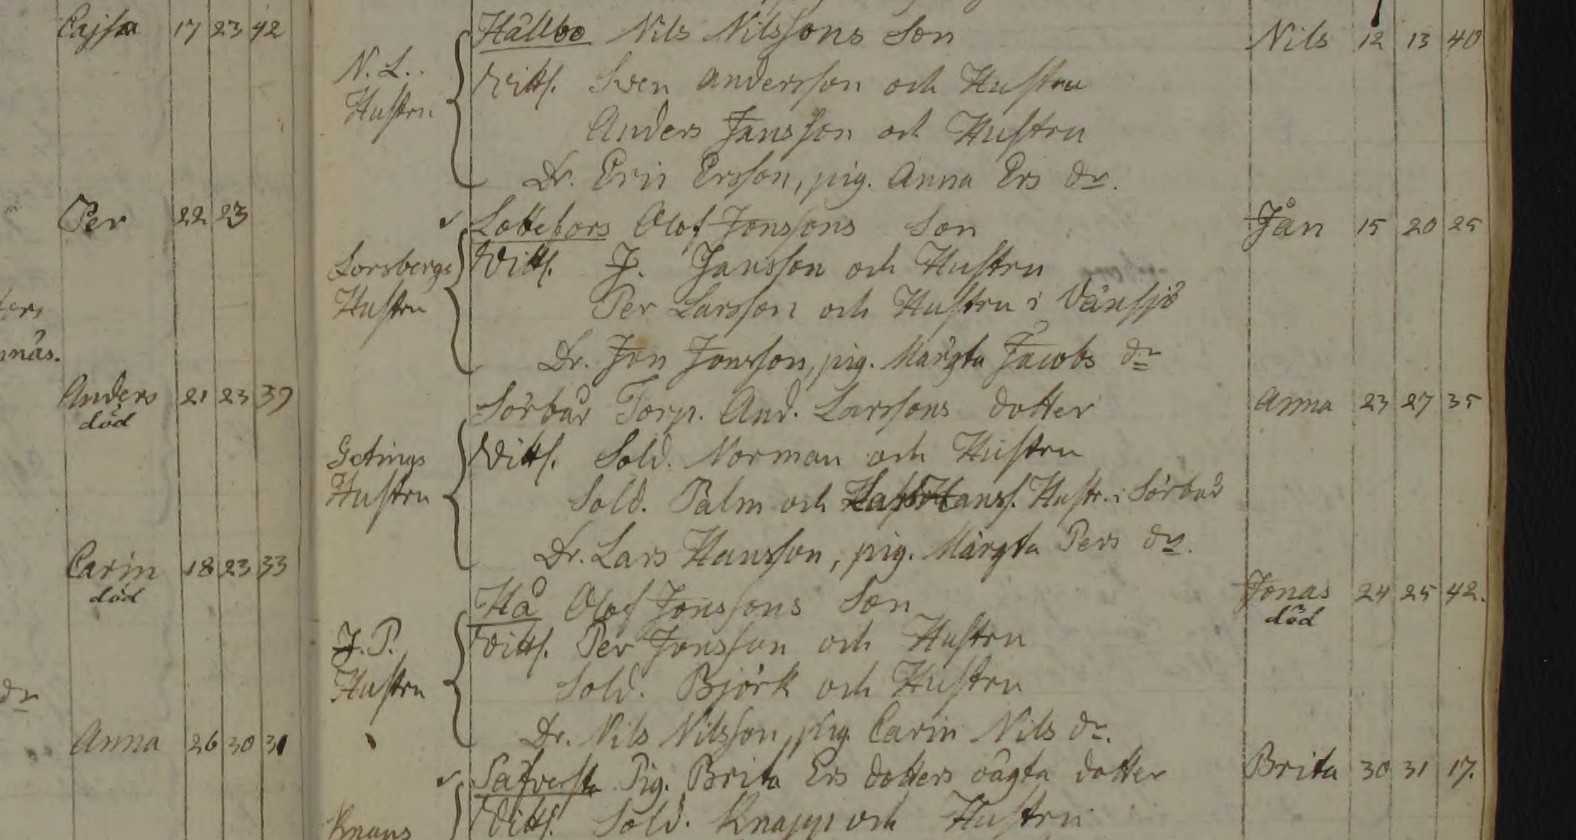 Cajsa 17 23 42
Per 22 23
nnäs.
Anders 21 23 39
död
Carin 18 23 33
död
dr
Anna 26 30 31
Hållbo Nils Nilssons Son Nils 12 13 40
N. L. Wittf. Sven Andersson och Hustru
Hustru Anders Jansson och Hustru
Dr. Eric Ersson, pig. Anna Ers dr.
Lottefors Olof Jonssons Son Jån 15 20 25
Lorsbergs Wittf. J. Jansson och Hustru
Hustru Per Larsson och Hustru i Vänssjö
Dr. Jon Jonsson, pig. Märgta Jacobs dr
Sörbär Torp. And. Larssons dotter Anna 23 27 35
Getings Wittf. Sold. Norman och Hustru
Hustru Sold. Palm och Hansf. Hustr. i Sörbär
Dr. Lars Hansson, pig. Märgta Pers dr.
Hå Olof Jonssons Son Jonas 24 25 42.
död
J. P. Wittf. Per Jonsson och Hustru
Hustru Sold. Björk och Hustru
Dr. Nils Nilsson, pig. Carin Nils dr.
Säfversta Pig. Brita Ers dotters oägta dotter Brita 30 31 17.
Knaps Wittf. Sold. Knapp och Hustru